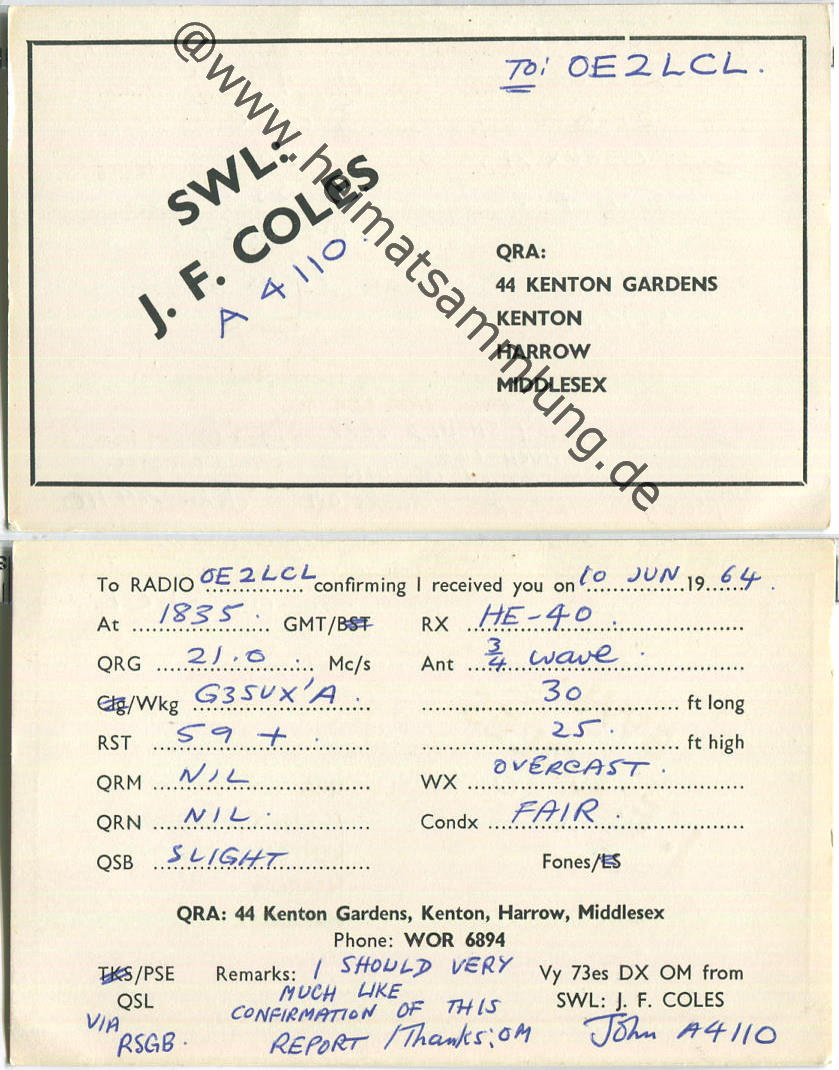 To: OE2LCL.
SWL:
J. F. COLES
A 4110.
QRA:
44 KENTON GARDENS
KENTON
HARROW
MIDDLESEX
@www.heimatsammlung.de
To RADIO OE2LCL confirming I received you on 10 JUN 1964.
At 1835. GMT/BST RX HE-40.
QRG 21.0 Mc/s Ant 3/4 wave.
Clg/Wkg G3SUX'A. 30 ft long
RST 59 +. 25. ft high
QRM NIL WX OVERCAST.
QRN NIL. Condx FAIR.
QSB SLIGHT Fones/ES
QRA: 44 Kenton Gardens, Kenton, Harrow, Middlesex
Phone: WOR 6894
TKS/PSE QSL VIA RSGB.
Remarks: I SHOULD VERY
MUCH LIKE
CONFIRMATION OF THIS
REPORT / Thanks; OM
Vy 73es DX OM from
SWL: J. F. COLES
John A4110